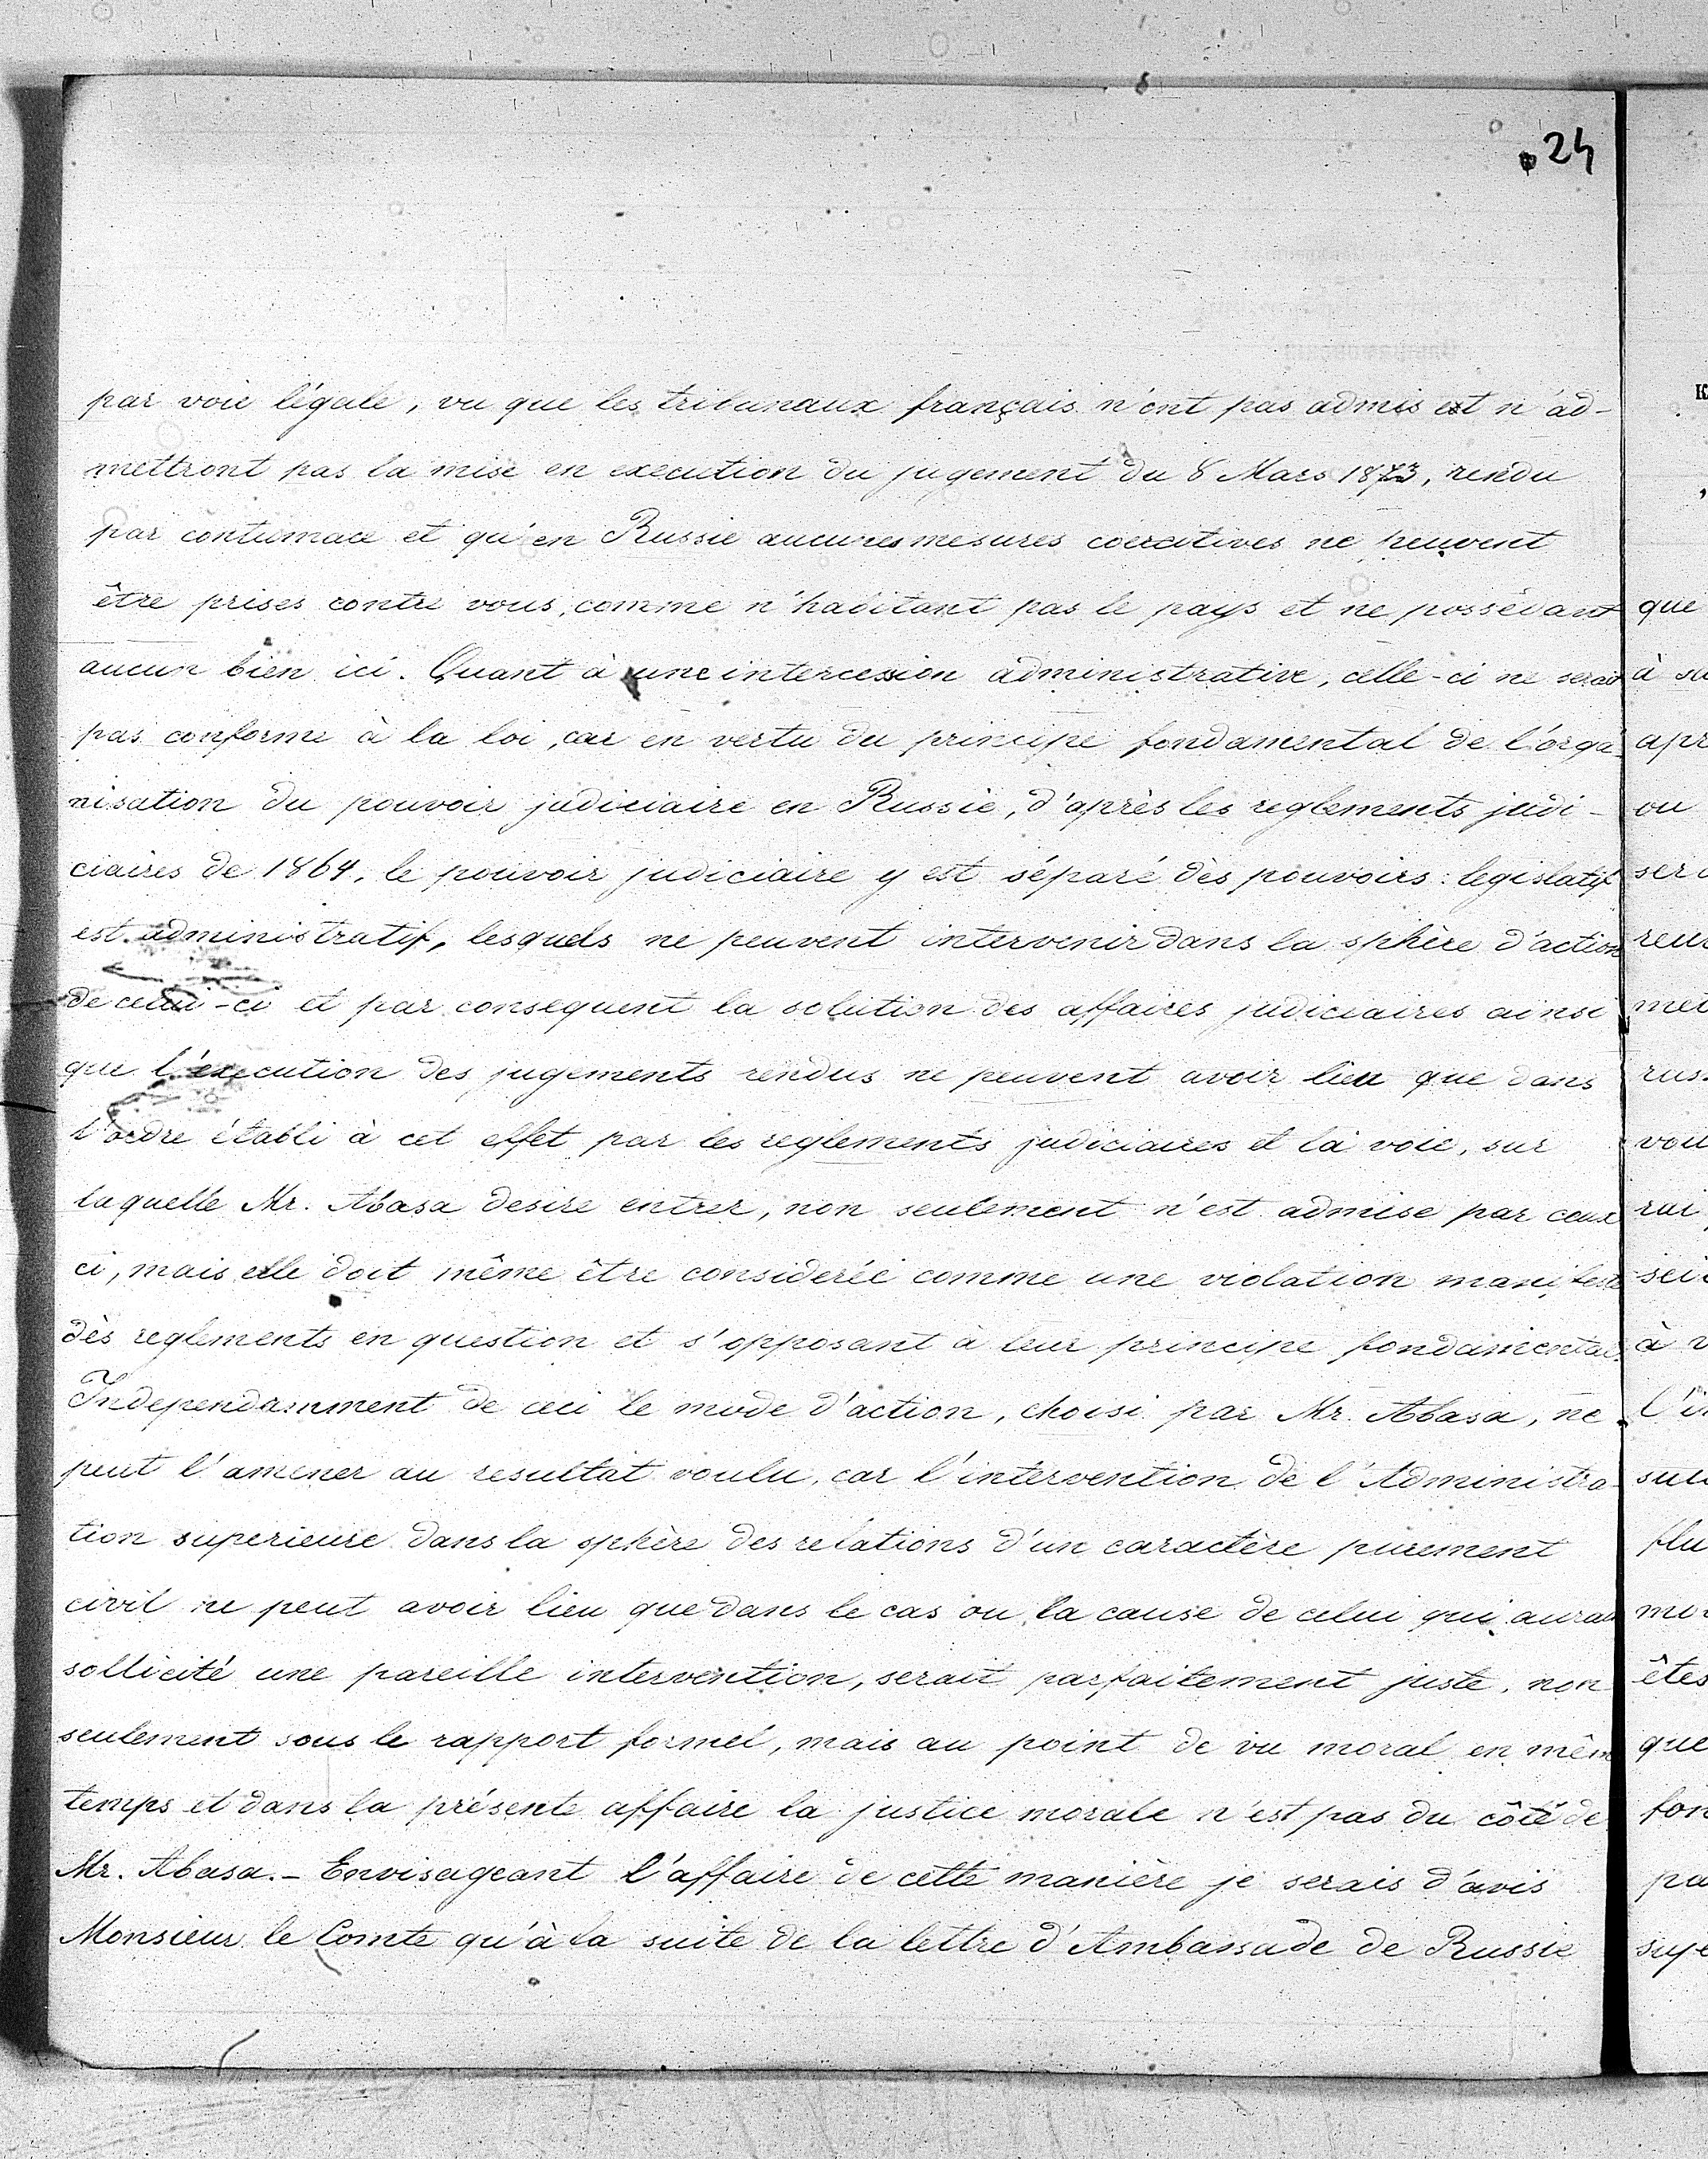 24
par voie légale, vu que les tribunaux français n'ont pas admis et n'ad-
mettront pas la mise en execution du jugement du 8 Mars 1873, rendu
par contumace et qu'en Russie aucunes mesures coercitives ne peuvent
être prises contre vous, comme n'habitant pas le pays et ne possédant
aucun bien ici. Quant à une intercession administrative, celle-ci ne serait
pas conforme à la loi, car en vertu du principe fondamental de l'orga-
nisation du pouvoir judiciaire en Russie, d'après les reglements judi-
ciaires de 1864, le pouvoir judiciaire y est séparé dès pouvoirs: legislatif
est administratif, lesquels ne peuvent intervenir dans la sphère d'action
de celui-ci et par consequent la solution des affaires judiciaires ainsi
que l'execution des jugements rendus ne peuvent avoir lieu que dans
l'ordre établi à cet effet par les reglements judiciaires et la voie, sur
laquelle Mr. Abasa desire entrer, non seulement n'est admise par ceux
ci, mais elle doit même être considerée comme une violation manifeste
dès reglements en question et s'opposant à leur principe fondamental.
Independamment de ceci le mode d'action, choisi par Mr. Abasa, ne
peut l'amener au resultat voulu, car l'intervention de l'Administra-
tion superieure dans la sphère des relations d'un caractère purement
civil ne peut avoir lieu que dans le cas ou la cause de celui qui aurait
sollicité une pareille intervention, serait parfaitement juste, non
seulement sous le rapport formel, mais au point de vu moral en même
temps et dans la présente affaire la justice morale n'est pas du côté de
Mr. Abasa.- Envisageant l'affaire de cette manière je serais d'avis
Monsieur le Comte qu'à la suite de la lettre d'Ambassade de Russie